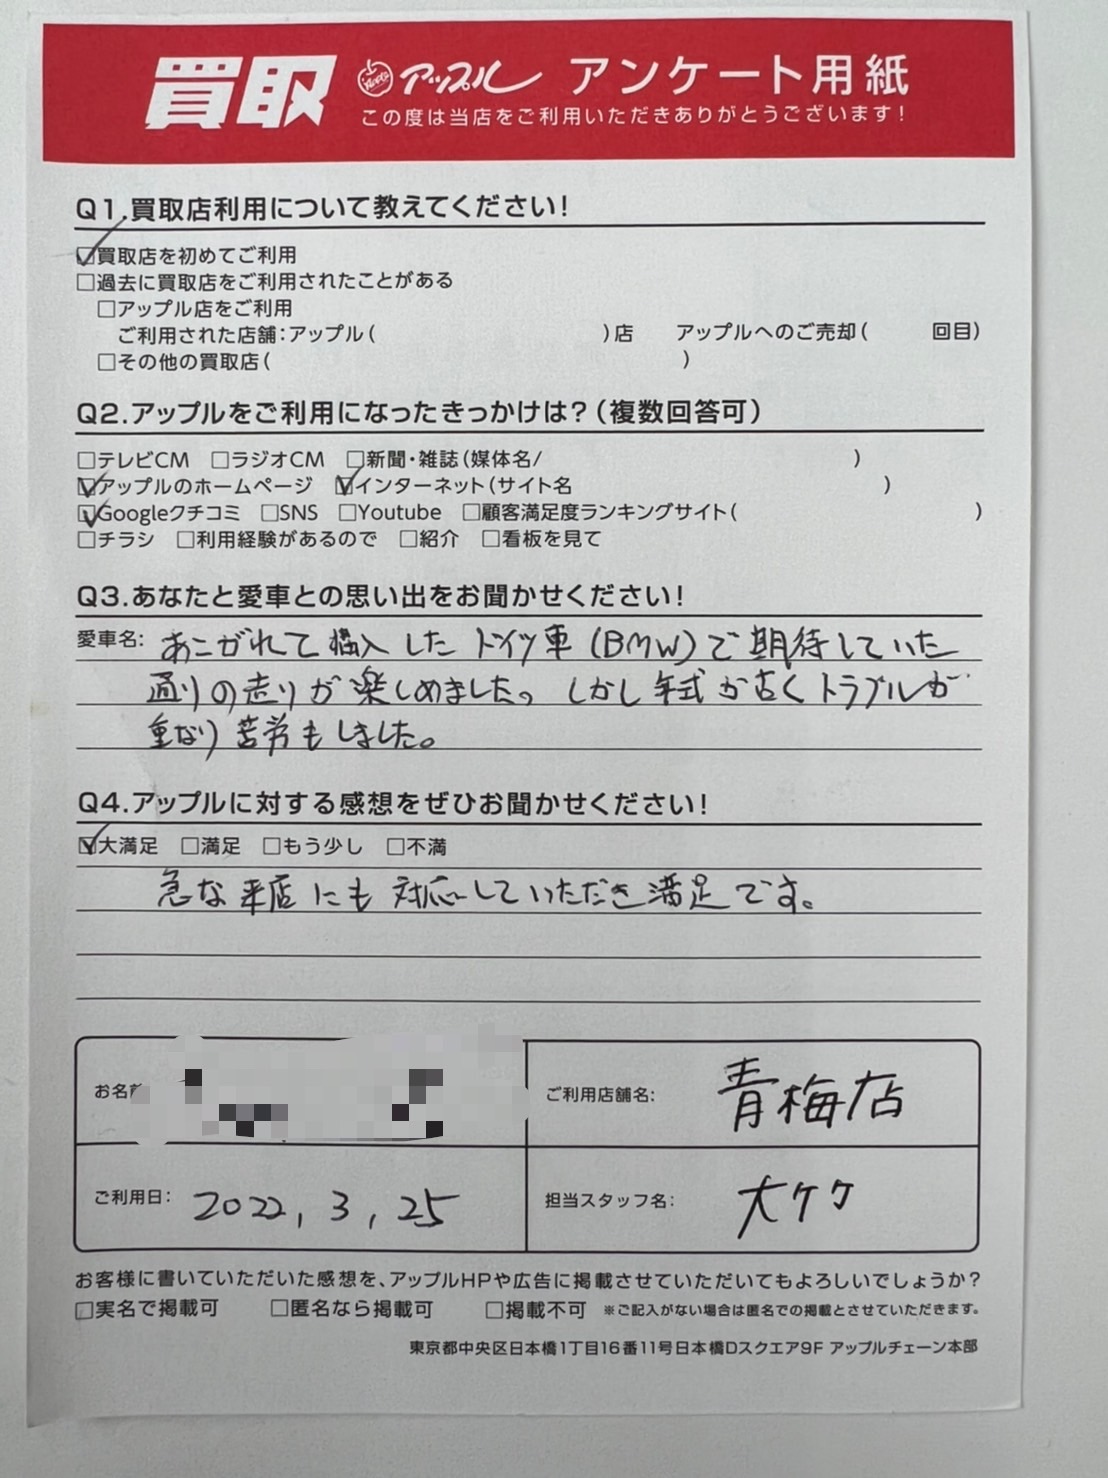 買取 アップル アンケート用紙
この度は当店をご利用いただきありがとうございます!
Q1.買取店利用について教えてください!
☑買取店を初めてご利用
□過去に買取店をご利用されたことがある
□アップル店をご利用
ご利用された店舗:アップル( )店 アップルへのご売却( 回目)
□その他の買取店( )
Q2.アップルをご利用になったきっかけは?(複数回答可)
□テレビCM □ラジオCM □新聞・雑誌(媒体名/ )
☑アップルのホームページ ☑インターネット(サイト名 )
☑Googleクチコミ □SNS □Youtube □顧客満足度ランキングサイト( )
□チラシ □利用経験があるので □紹介 □看板を見て
Q3.あなたと愛車との思い出をお聞かせください!
愛車名: あこがれて購入したドイツ車(BMW)で期待していた
通りの走りが楽しめました。しかし年式が古くトラブルが
重なり苦労もしました。
Q4.アップルに対する感想をぜひお聞かせください!
☑大満足 □満足 □もう少し □不満
急な来店にも対応していただき満足です。
お名前
ご利用店舗名: 青梅店
ご利用日: 2022, 3, 25
担当スタッフ名: 大
お客様に書いていただいた感想を、アップルHPや広告に掲載させていただいてもよろしいでしょうか?
□実名で掲載可 □匿名なら掲載可 □掲載不可 ※ご記入がない場合は匿名での掲載とさせていただきます。
東京都中央区日本橋1丁目16番11号日本橋Dスクエア9F アップルチェーン本部